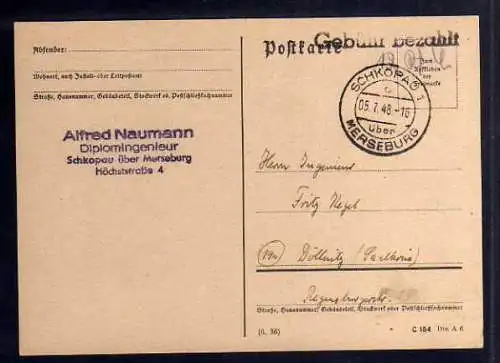 Absender:
Wohnort, auch Zustell- oder Leitpostamt
Straße, Hausnummer, Gebäudeteil, Stockwerk od. Postschließfachnummer
Alfred Naumann
Diplomingenieur
Schkopau über Merseburg
Höchststraße 4
Postkarte
Gebühr bezahlt
Zum
Aufkleben
der
SCHKOPAU 1
c
05.7.48.-16
über
MERSEBURG
Herrn Ingenieur
Fritz Hegel
Döllnitz (Saalkreis)
Straße, Hausnummer, Gebäudeteil, Stockwerk oder Postschließfachnummer
C 154 Din A 6